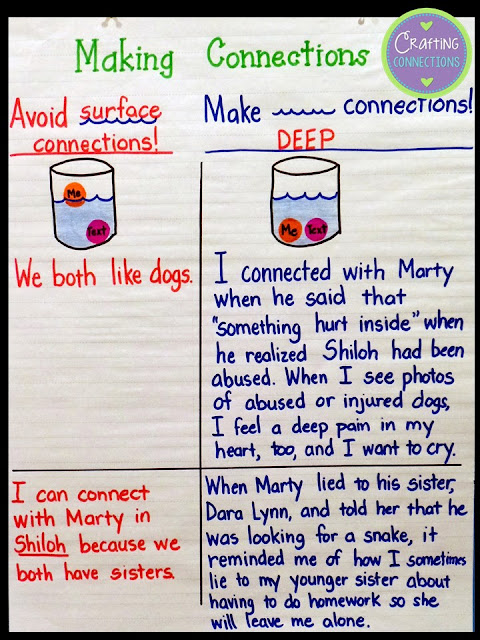 Making Connections
CRAFTING
CONNECTIONS
Avoid surface
connections!
Me
Text
We both like dogs.
I can connect
with Marty in
Shiloh because we
both have sisters.
Make connections!
DEEP
Me Text
I connected with Marty
when he said that
"something hurt inside" when
he realized Shiloh had been
abused. When I see photos
of abused or injured dogs,
I feel a deep pain in my
heart, too, and I want to cry.
When Marty lied to his sister,
Dara Lynn, and told her that he
was looking for a snake, it
reminded me of how I sometimes
lie to my younger sister about
having to do homework so she
will leave me alone.